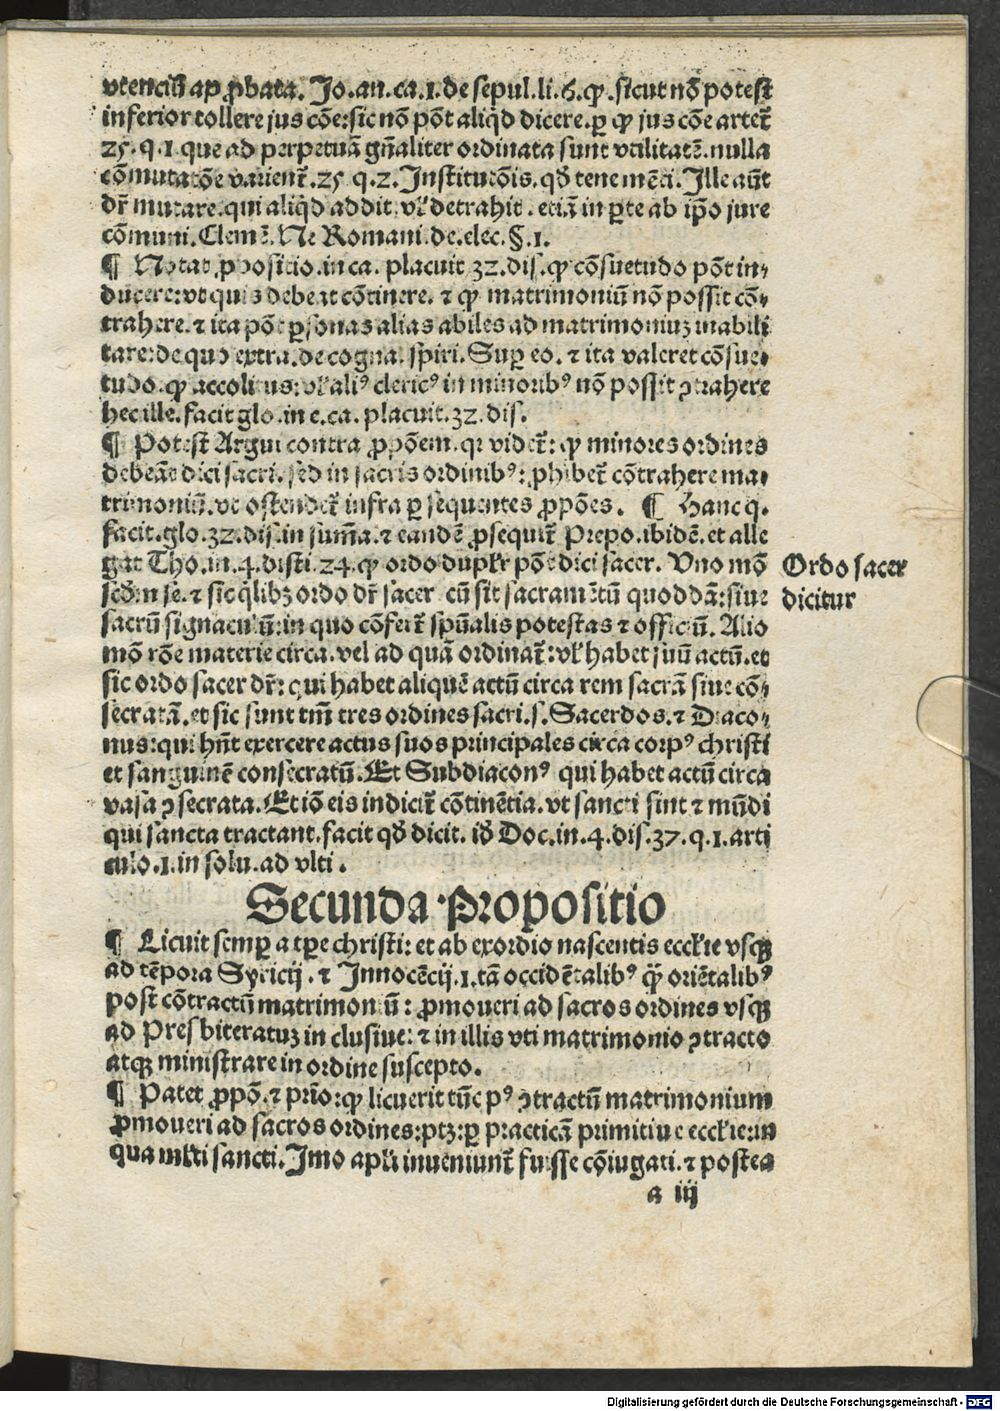 vtenciũ ap ꝓbata. Jo. an. ca. 1. de sepul. li. 6. ꝙ. sicut nõ potest
inferior tollere jus cõe: sic nõ põt aliqd dicere. ꝑ ꝙ jus cõe artet̃
25. q. 1. que ad perpetuã gñaliter ordinata sunt vtilitatẽ. nulla
cõmutatõe varient̃. 25 q. 2. Institutõis. qð tene mẽti. Ille aũt
dr̃ mutare. qui aliqd addit vł detrahit. etiã in ꝑte ab ip̃o jure
cõmuni. Clemẽ. Ne Romani. de. elec. §. 1.
¶ Notat ꝓpositio. in ca. placuit 32. dis. ꝙ cõsuetudo põt in-
ducere: vt quis debeat cõtinere. ⁊ ꝙ matrimoniũ nõ possit cõ-
trahere. ⁊ ita põt ꝑsonas alias abiles ad matrimoniuꝫ inabili
tare: de quo extra. de cogna. spiri. Suꝑ eo. ⁊ ita valeret cõsue-
tudo. ꝙ accolitus: vł aliꝰ clericꝰ in minoribꝰ nõ possit ꝯtrahere
hec ille. facit glo. in e. ca. placuit. 32. dis.
¶ Potest Argui contra ꝓpõem. qꝛ videt̃: ꝙ minores ordines
debeãt dici sacri. sed in sacris ordinibꝰ: ꝓhibet̃ cõtrahere ma-
trimoniũ. vt ostendet̃ infra ꝑ sequentes ꝓpões. ¶ Hanc q.
facit. glo. 32. dis. in sum̃a. ⁊ eandẽ ꝓsequit̃ Prepo. ibidẽ. et alle
gat Tho. in. 4. disti. 24. ꝙ ordo dupłr põt dici sacer. Uno mõ
scðm se. ⁊ sic qlibꝫ ordo dr̃ sacer cũ sit sacramẽtũ quoddã: siue
sacrũ signaculũ: in quo cõfert̃ spũalis potestas ⁊ officiũ. Alio
mõ rõe materie circa. vel ad quã ordinat̃: vł habet suũ actũ. et
sic ordo sacer dr̃: qui habet aliquẽ actũ circa rem sacrã siue cõ-
secratã. et sic sunt tm̃ tres ordines sacri. s. Sacerdos. ⁊ Diaco-
nus: qui hñt exercere actus suos principales circa corpꝰ christi
et sanguinẽ consecratũ. Et Subdiaconꝰ qui habet actũ circa
vasa ꝯsecrata. Et iõ eis indicit̃ cõtinẽtia. vt sancti sint ⁊ mũdi
qui sancta tractant. facit qð dicit. ið Doc. in. 4. dis. 37. q. 1. arti
culo. 1. in solu. ad vlti.
Ordo sacer
dicitur
Secunda Propositio
¶ Licuit semꝑ a tꝑe christi: et ab exordio nascentis eccłie vsqꝫ
ad tẽpora Syricij. ⁊ Innocẽcij. 1. tã occidẽtalibꝰ q̃ꝫ oriẽtalibꝰ
post cõtractũ matrimoniũ: ꝓmoueri ad sacros ordines vsqꝫ
ad Presbiteratuꝫ in clusiue: ⁊ in illis vti matrimonio ꝯtracto
atqꝫ ministrare in ordine suscepto.
¶ Patet ꝓpõ. ⁊ pr̃io: ꝙ licuerit tũc pꝰ ꝯtractũ matrimonium
ꝓmoueri ad sacros ordines: ptꝫ: ꝑ practicã primitiue eccłie: in
qua młti sancti. Imo apłi inueniunt̃ fuisse cõiugati. ⁊ postea
a iij
Digitalisierung gefördert durch die Deutsche Forschungsgemeinschaft - DFG